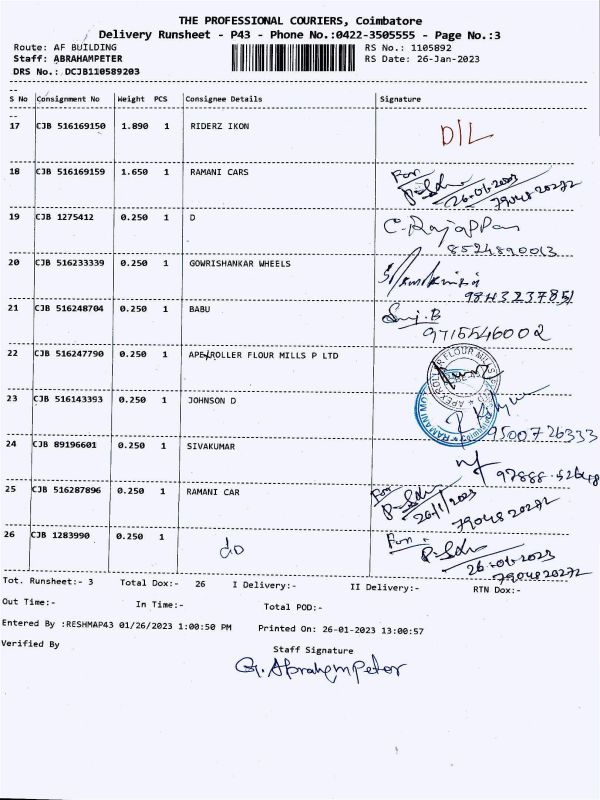 THE PROFESSIONAL COURIERS, Coimbatore
Delivery Runsheet - P43 - Phone No.:0422-3505555 - Page No.:3
Route: AF BUILDING RS No.: 1105892
Staff: ABRAHAMPETER RS Date: 26-Jan-2023
DRS No.: DCJB110589203
S No Consignment No Weight PCS Consignee Details Signature
17 CJB 516169150 1.890 1 RIDERZ IKON D/L
18 CJB 516169159 1.650 1 RAMANI CARS For
26.01.2023
79048 20272
19 CJB 1275412 0.250 1 D C. Rajappan
8524890013
20 CJB 516233339 0.250 1 GOWRISHANKAR WHEELS
21 CJB 516248704 0.250 1 BABU
9715546002
22 CJB 516247790 0.250 1 APEX ROLLER FLOUR MILLS P LTD
23 CJB 516143393 0.250 1 JOHNSON D
9500726333
24 CJB 89196601 0.250 1 SIVAKUMAR
25 CJB 516287896 0.250 1 RAMANI CAR For
26/1/2023
79048 20272
26 CJB 1283990 0.250 1 do For
26.01.2023
7904820272
Tot. Runsheet:- 3 Total Dox:- 26 I Delivery:- II Delivery:- RTN Dox:-
Out Time:- In Time:- Total POD:-
Entered By :RESHMAP43 01/26/2023 1:00:50 PM Printed On: 26-01-2023 13:00:57
Verified By Staff Signature
G. Abrahempetor